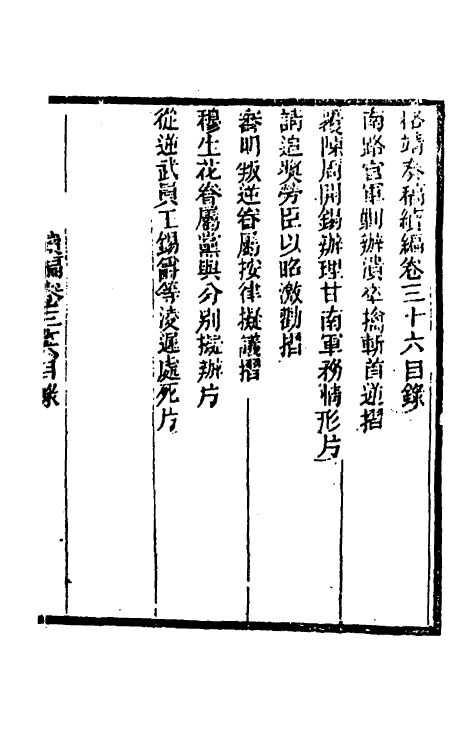 恪靖奏稿續編卷三十六目錄
南路官軍剿辦潰卒擒斬首逆摺
覆陳周開錫辦理甘南軍務情形片
請追獎勞臣以昭激勸摺
審明叛逆眷屬按律擬議摺
穆生花眷屬黨與分別擬辦片
從逆武員王錫爵等淩遲處死片
續編卷三十六目錄